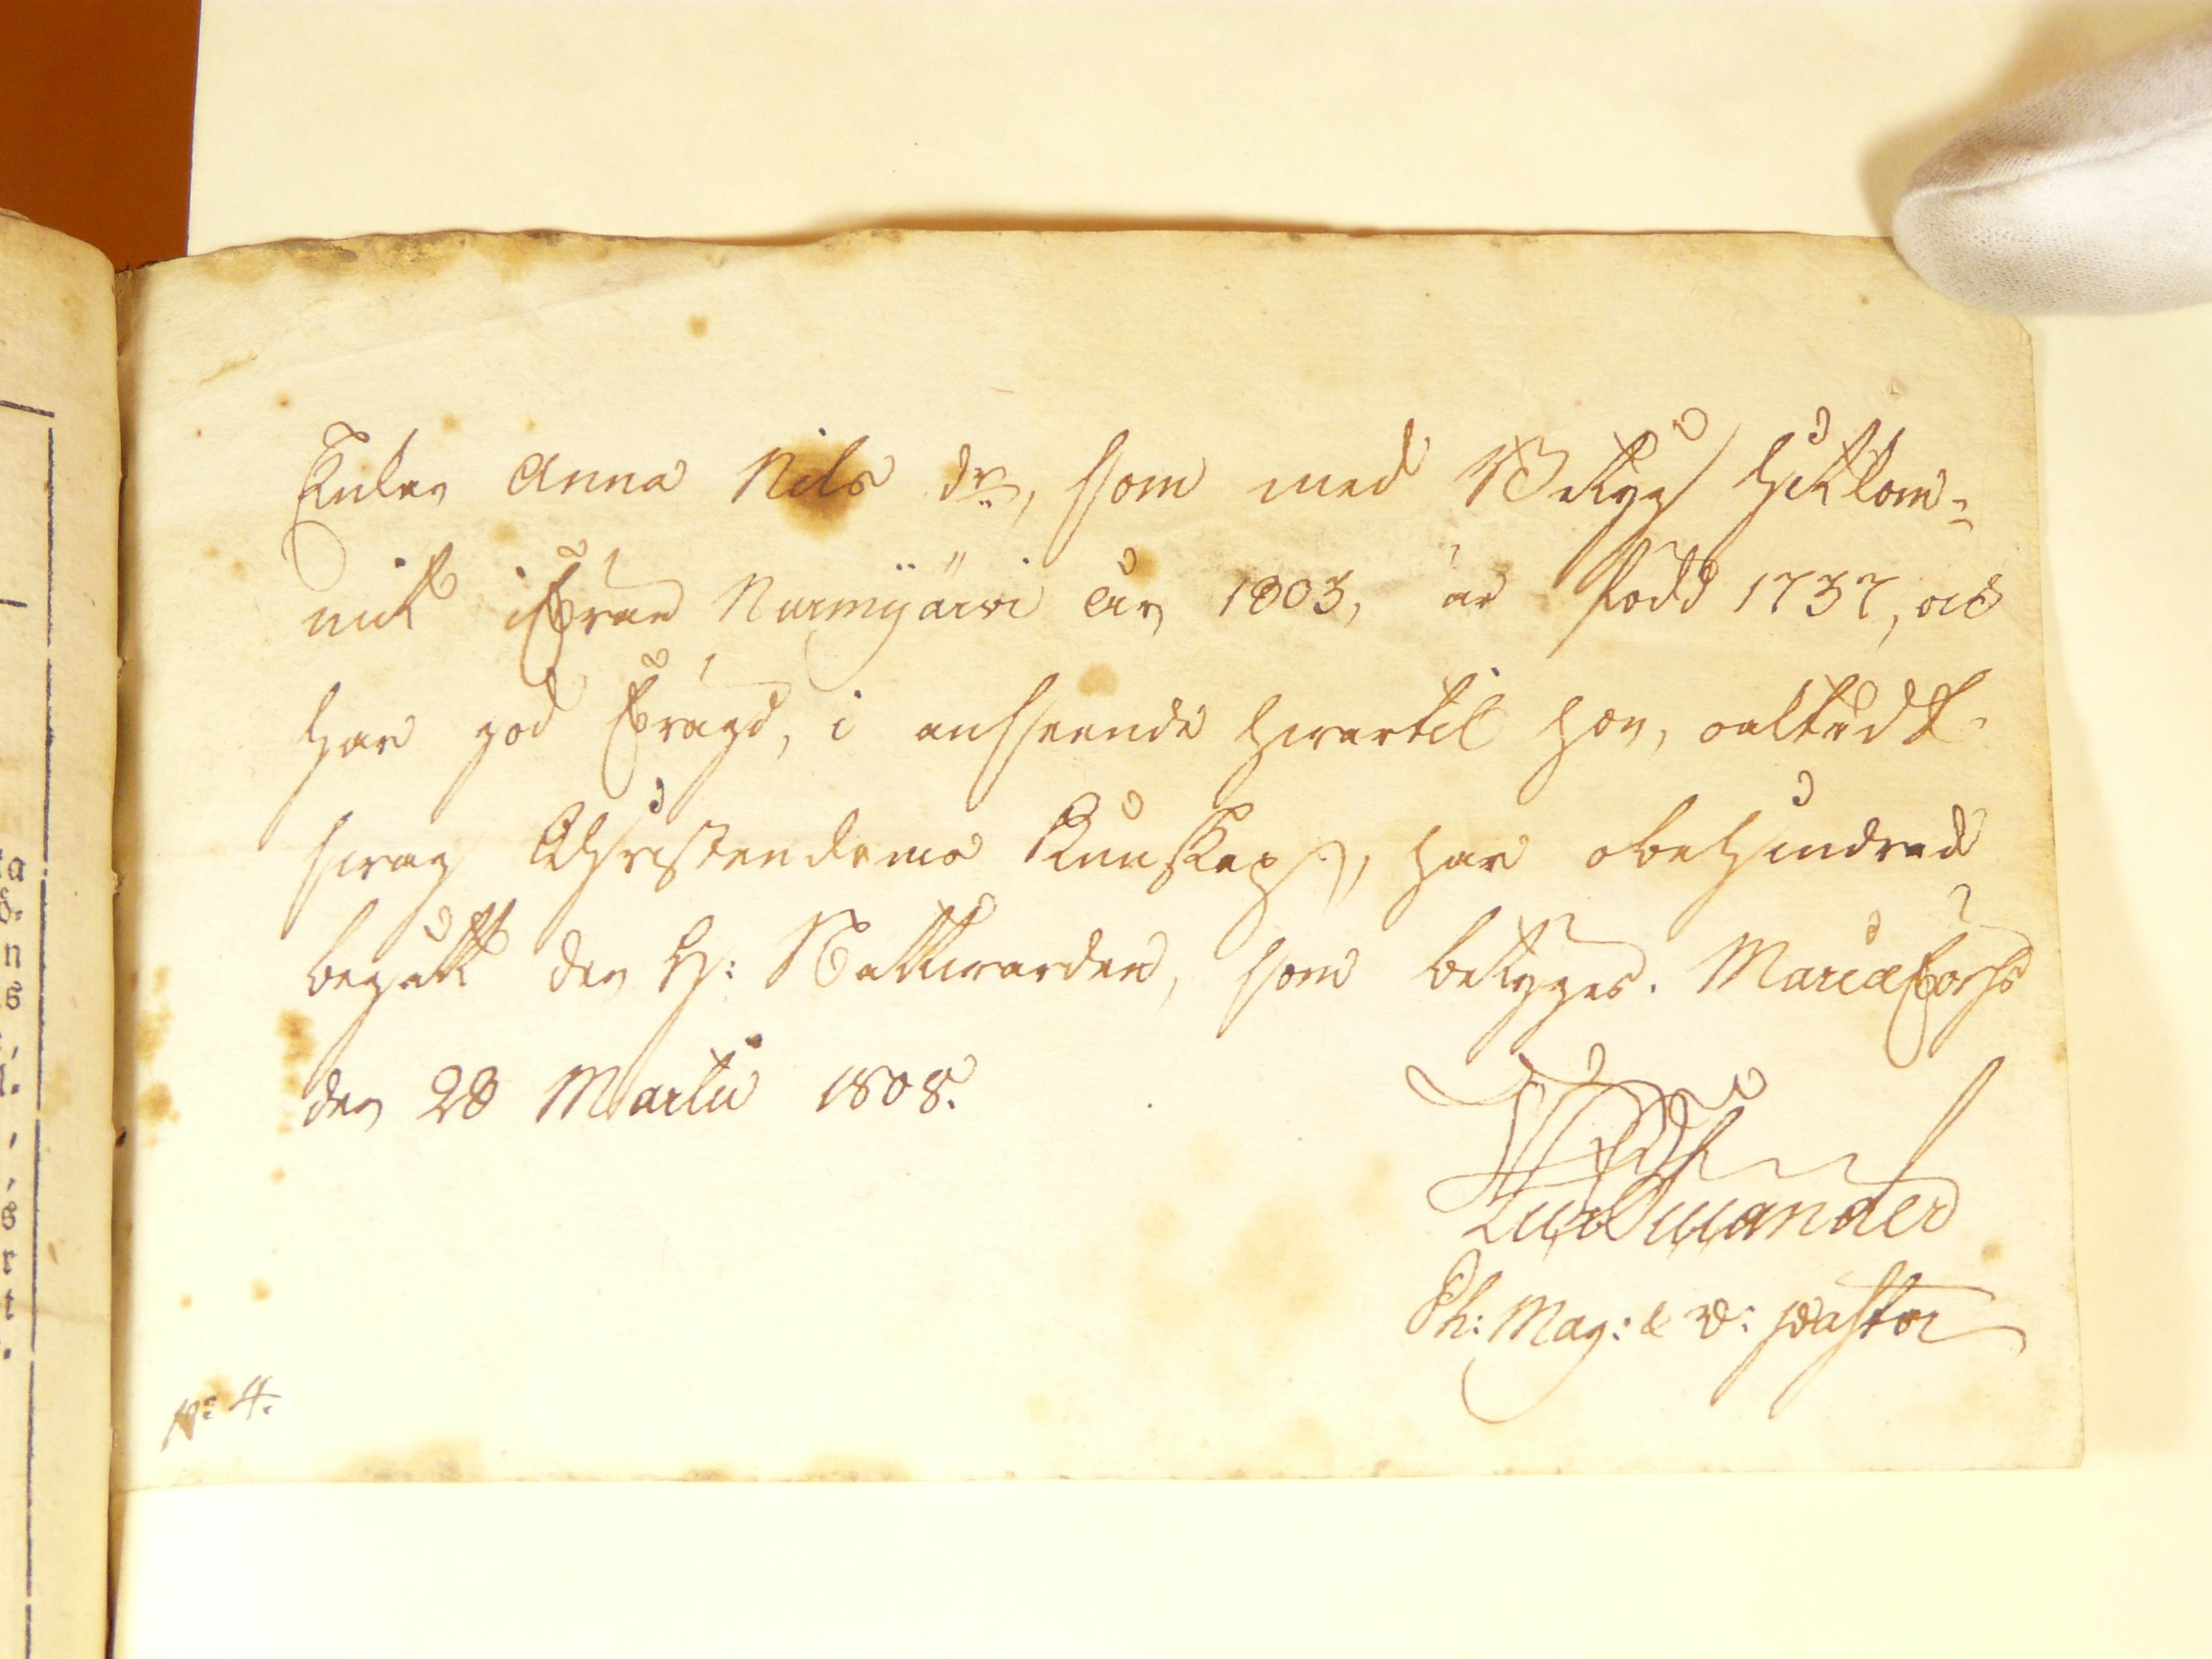 Enkan Anna Nils dr, som med Betyg hitkom-
mit ifrån Nurmijärvi år 1803, är född 1737, och
har god frägd, i anseende hvartil hon, oaktadt
svag Christendoms Kunskap, har obehindrad
begått den H: Nattwarden, som betygas. Mariæfors
den 28 Martii 1808.
Ph: Mag: & V: Pastor
No 4.